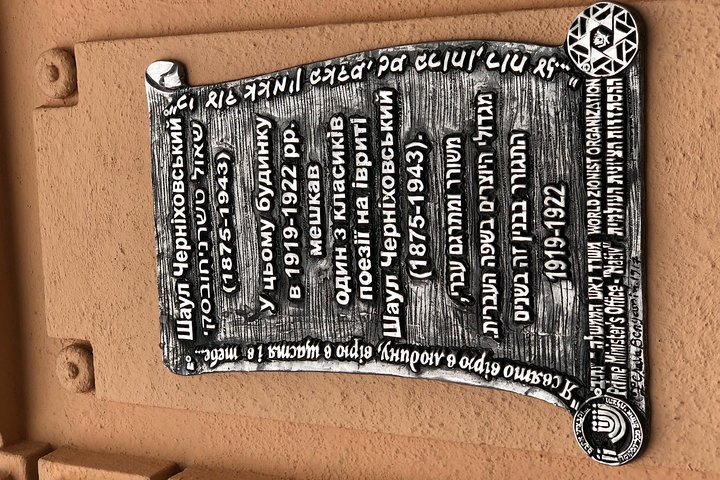 "כי עוד אאמין באדם, גם ברוחו, רוח עז..."
Шаул Черніховський
שאול טשרניחובסקי
(1875-1943)
У цьому будинку
в 1919-1922 рр.
мешкав
один з класиків
поезії на івриті
Шаул Черніховський
(1875-1943).
משורר ומתרגם עברי,
מגדולי היוצרים בשפה העברית.
התגורר בבנין זה בשנים
1919-1922
"Я свято вірю в людину, вірю в щастя і в тебе..."
משרד ראש הממשלה - נתיב WORLD ZIONIST ORGANIZATION
Prime Minister's Office - "Nativ" ההסתדרות הציונית העולמית